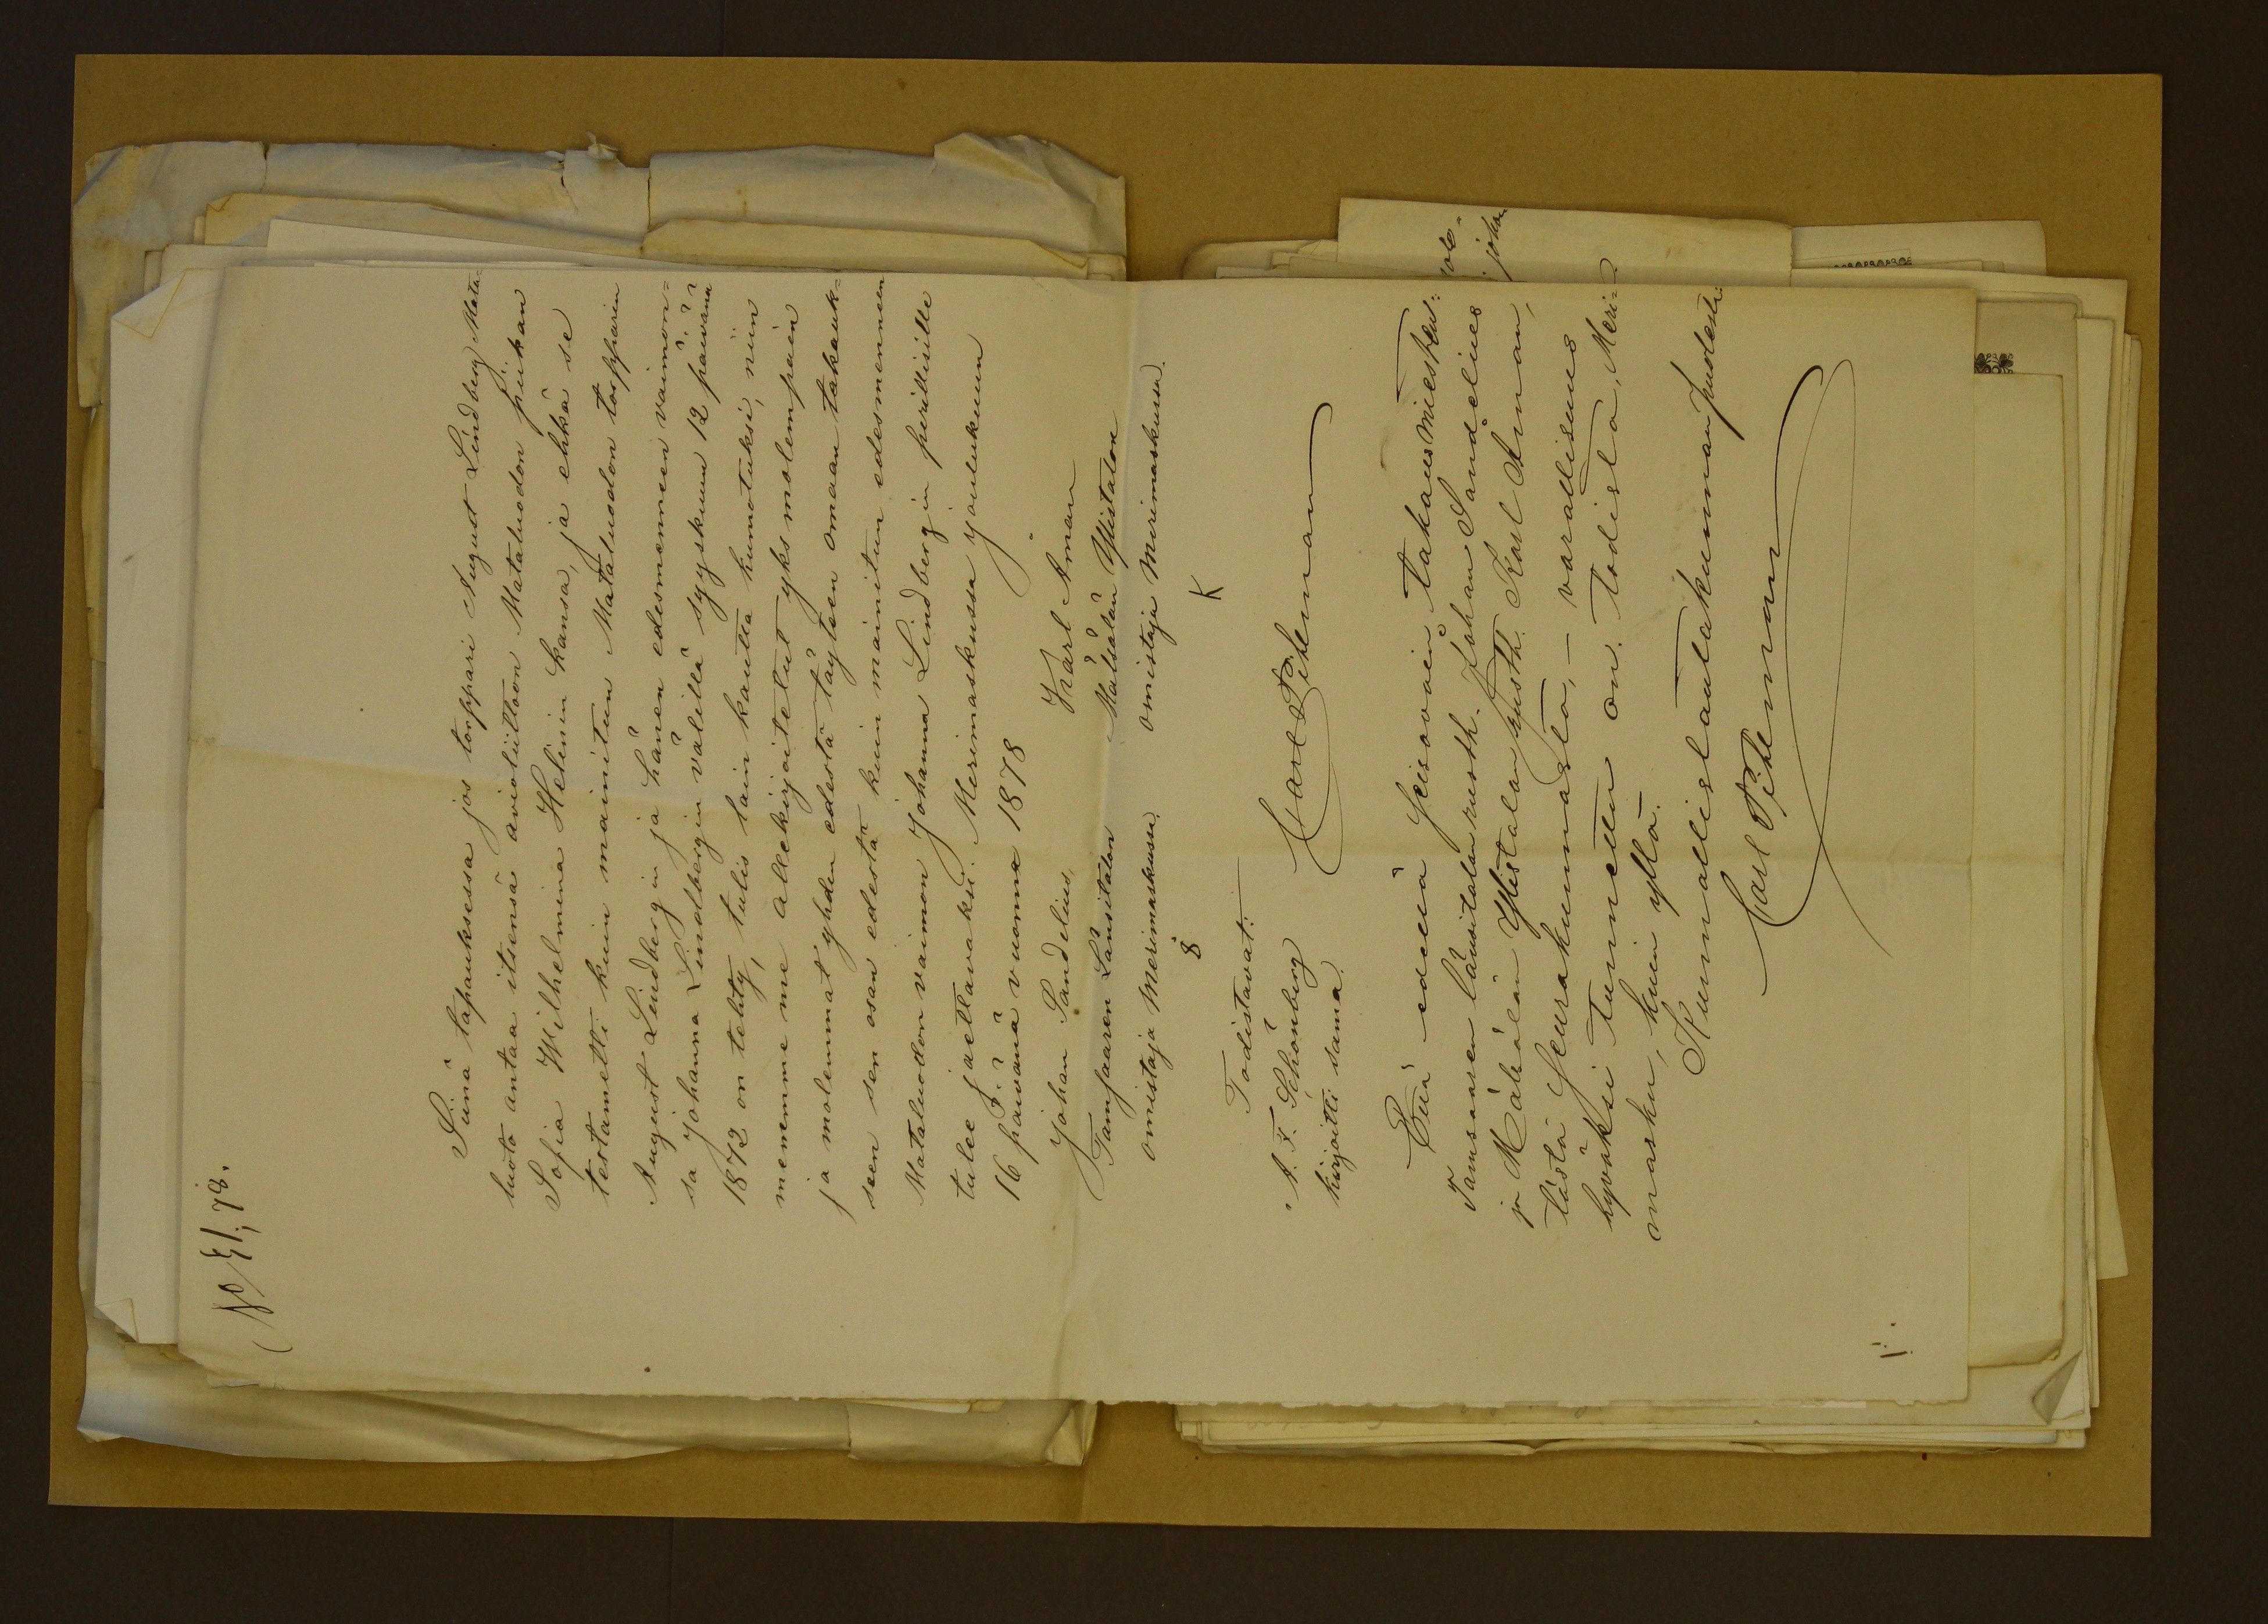 No 51, 78.
Siinä tapauksessa jos torppari August Lindberg Mata=
luoto antaa itsensä avioliittoon Mataluodon piikan
Sofia Wilhelmina Helinin kansa, ja ehkä se
testametti kuin mainitun Mataluodon torpparin
August Lindbergin ja hänen edesmennen vaimon=
sa Johanna Lindbergin välillä syyskuun 12 päivänä
1872 on tehty, tulis tain kautta kumotuksi, niin
menemme me allekirjoitetut yks molempain
ja molemmat yhden edestä täyteen omaan takauk=
seen sen osan edestä kuin mainitun edesmenneen
Mataluodon vaimon Johanna Lindbergin perillisille
tulee jaettavaksi. Merimaskussa joulukuun
16 päivänä vuonna 1878
Johan Sandelius, Karl Aman
Tamsaaren Länsitalon Målsalän Ylistalon
omistaja Merimaskussa. omistaja Merimaskussa.
8 K
Todistavat:
A. F. Schönberg Carl Pihlman
kirjoitti sama.
Että edellä seisovain takausmiesten:
Tamsaaren länsitalan rusth. Johan Sandelius
ja Målsalän Ylistalan rusth. Karl Aman,
tästä Seurakunnasta, – varallisuus
hyväksi tunnettu on. Todista, Meri=
masku, kuin yllä.
Kunnallislautakunnan puolesta:
Carl Pihlman
1.